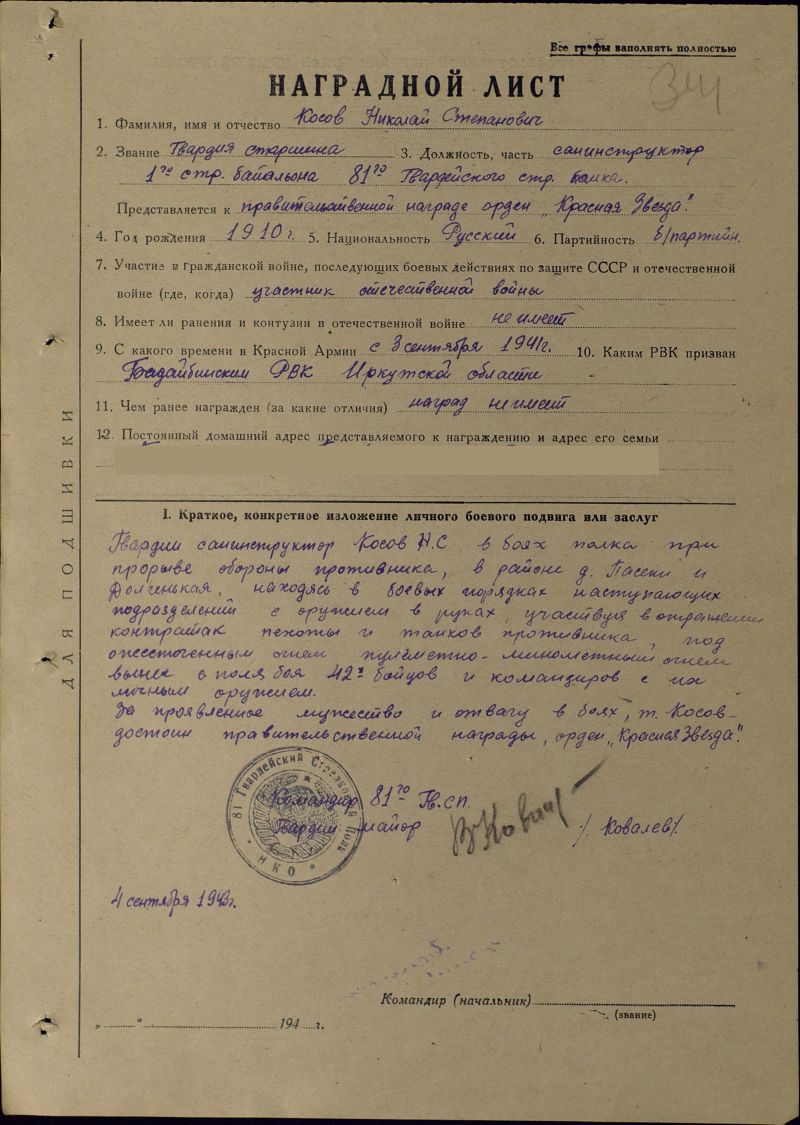 Все графы заполнять полностью
НАГРАДНОЙ ЛИСТ
1. Фамилия, имя и отчество Косов Николай Степанович
2. Звание Гвардия старшина 3. Должность, часть санинструктор
1го стр. батальона 81го Гвардейского стр. полка.
Представляется к правительственной награде орден „Красная Звезда".
4. Год рождения 1910 г. 5. Национальность Русский 6. Партийность б/партийн.
7. Участие в гражданской войне, последующих боевых действиях по защите СССР и отечественной
войне (где, когда) участник отечественной войны
8. Имеет ли ранения и контузии в отечественной войне не имеет
9. С какого времени в Красной Армии с 3 сентября 1941г. 10. Каким РВК призван
Бадайбинским РВК Иркутской области
11. Чем ранее награжден (за какие отличия) наград не имеет
12. Постоянный домашний адрес представляемого к награждению и адрес его семьи
I. Краткое, конкретное изложение личного боевого подвига или заслуг
Гвардии санинструктор Косов Н.С в боях полка при
прорыве обороны противника, в районе д. Пасеки и
Долченькая, находясь в боевых порядках наступающих
подразделений с оружием в руках, участвуя в отражении
контратак пехоты и танков противника, под
ожесточенным огнем пулеметно-минометным огнем
вынес с поля боя 42х бойцов и командиров с их
личным оружием.
За проявленное мужество и отвагу в боях, т. Косов-
достоин правительственной награды, орден „Красная Звезда".
81 Гвардейский Стрелковый Полк
НКО
Командир 81го Гв.сп.
Гвардии майор /Ковалев/
4 сентября 1943г.
Командир (начальник)
(звание)
„ " 194 г.
ДЛЯ ПОДШИВКИ